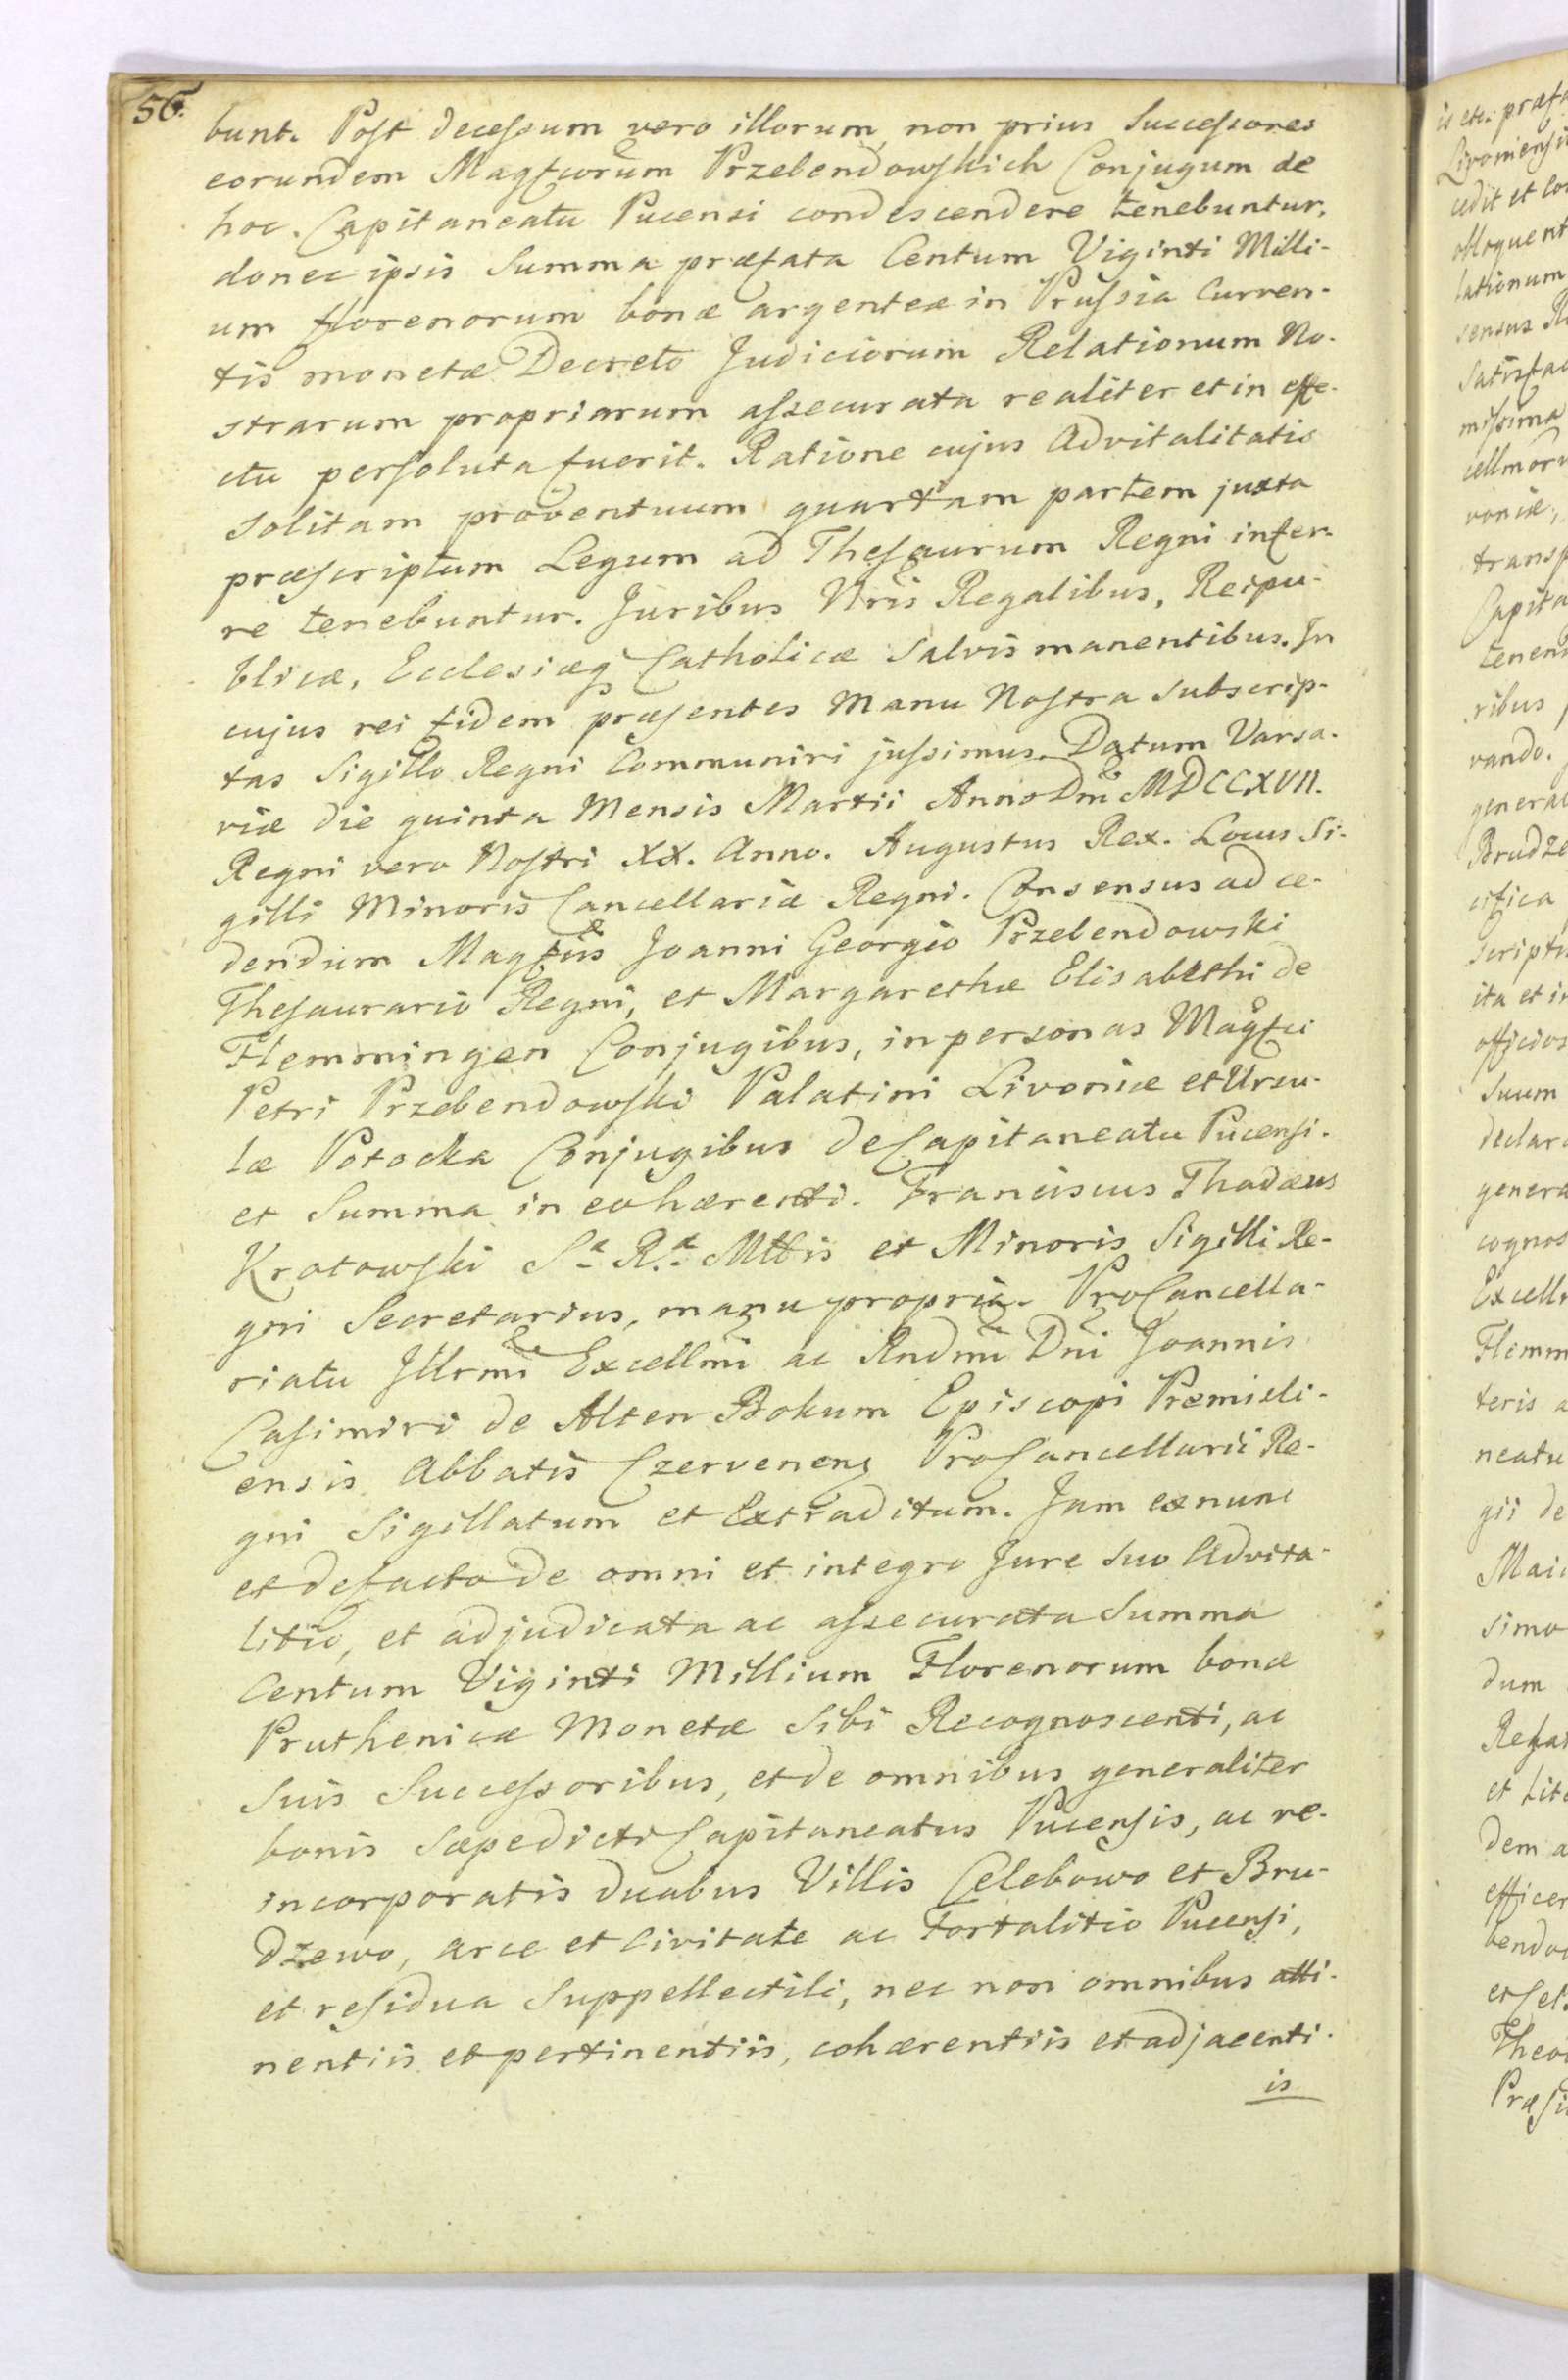 56.
bunt. Post decessum vero illorum, non prius Successores
eorundem Magfcorum Przebendowskich Conjugum de
hoc. Capitaneatu Pucensi condescendere tenebuntur,
donec ipsis Summa præfata Centum Viginti Milli-
um florenorum bonæ argenteæ in Prussia Curren-
tis monetæ Decreto Judiciorum Relationum No-
strarum propriarum assecurata realiter et in effe-
ctu persoluta fuerit. Ratione cujus Advitalitatis
solitam proventuum quartam partem juxta
præscriptum Legum ad Thesaurum Regni infer-
re tenebuntur. Juribus Nris Regalibus, Reipu-
blicæ, Ecclesiæq Catholicæ Salvis manentibus. In
cujus rei fidem præsentes Manu Nostra subscrip-
tas Sigillo Regni Communiri jussimus. Datum Varsa-
viæ die quinta Mensis Martii Anno Dni MDCCXVII.
Regni vero Nostri XX. Anno. Augustus Rex. Locus Si-
gilli Minoris Cancellariæ Regni. Consensus ad ce-
dendum Magfiis Joanni Georgio Przebendowski
Thesaurario Regni, et Margarethæ Elisabethi de
Flemmingen Conjugibus, in personas Magfci
Petri Przebendowski Palatini Livoniæ et Ursu-
læ Potocka Conjugibus de Capitaneatu Pucensi.
et Summa in eo hærenti. Franciscus Thadæus
Krotowski Sæ Ræ Mttis et Minoris Sigilli Re-
gni Secretarius, manu propria. ProCancella-
riatu Jllrmi Excellmi ac Rndmi Dni Joannis
Casimiri de Alten Bokum Episcopi Premisli-
ensis Abbatis Czervenens ProCancellarii Re-
gni Sigillatum et Extraditum. Jam ex nunc
et de facto de omni et integro Jure suo Advita-
litio, et adjudicata ac assecurata Summa
Centum Viginti Millium Florenorum bonæ
Pruthenicæ Monetæ Sibi Recognoscenti, ac
Suis Successoribus, et de omnibus generaliter
bonis sæpedicti Capitaneatus Pucensis, ac re-
incorporatis duabus Villis Celebowo et Bru-
dzewo, arce et Civitate ac Fortalitio Pucensi,
et residua Suppellectili, nec non omnibus atti-
nentiis et pertinentiis, cohærentiis et adjacenti-
is